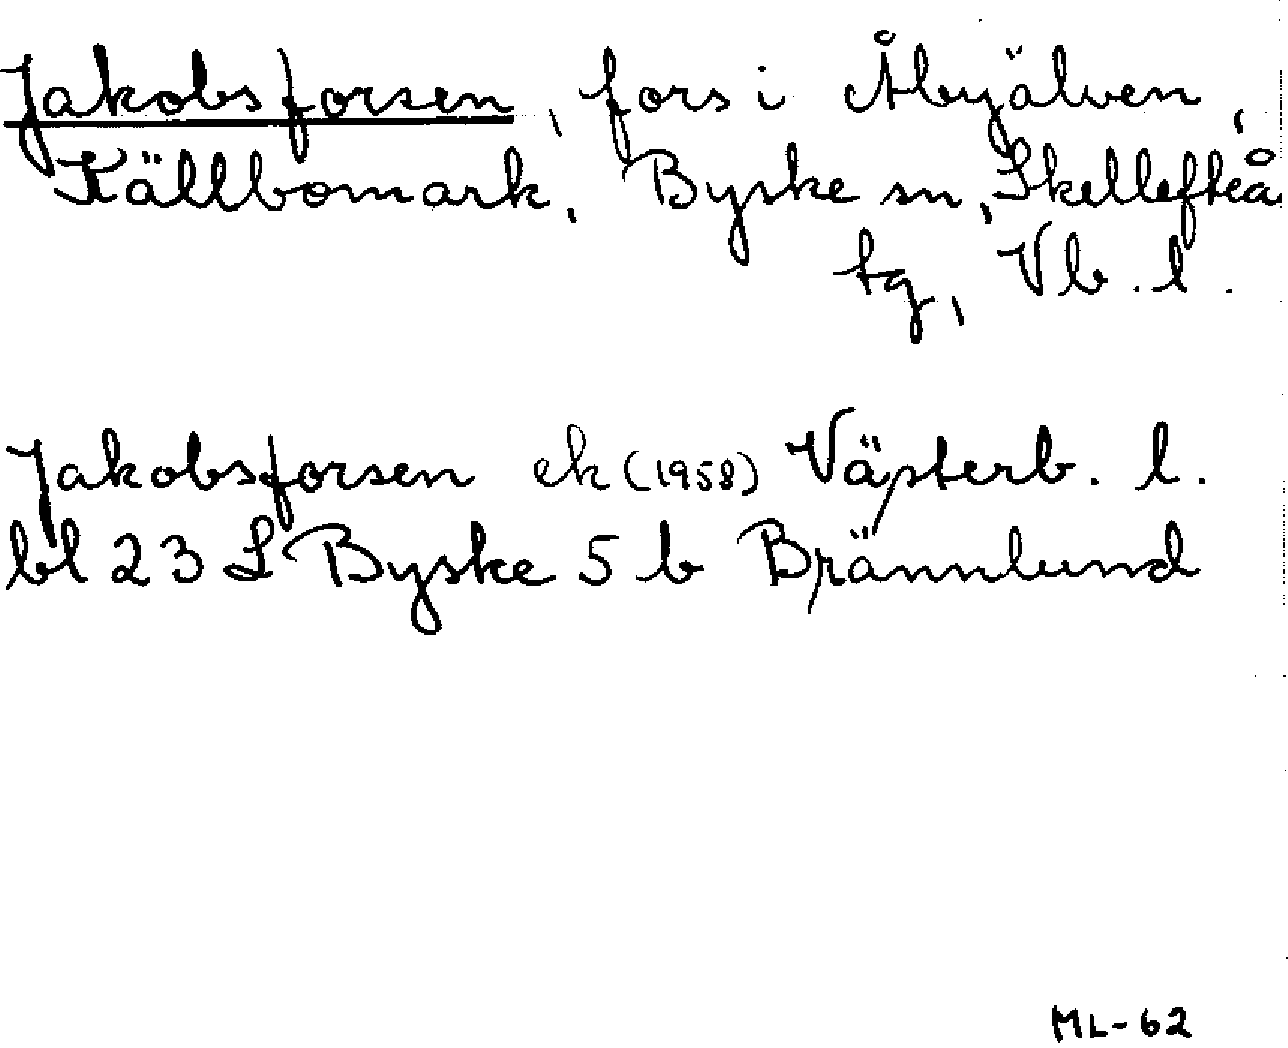 Jakobsforsen, fors i Åbyälven,
Källbomark, Byske sn, Skellefteå
tg, Vb. l.
Jakobsforsen ek (1958) Västerb. l.
bl 23 L Byske 5 b Brännlund
ML-62